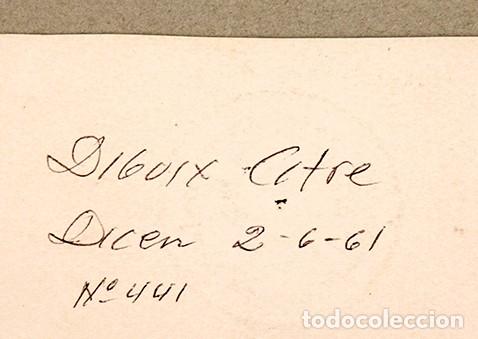 Diboix Citre
Dicen 2-6-61
Nº 441
todocoleccion